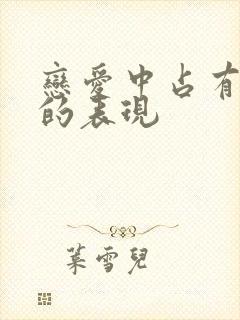 戀愛中占有
的表現
葉雪兒